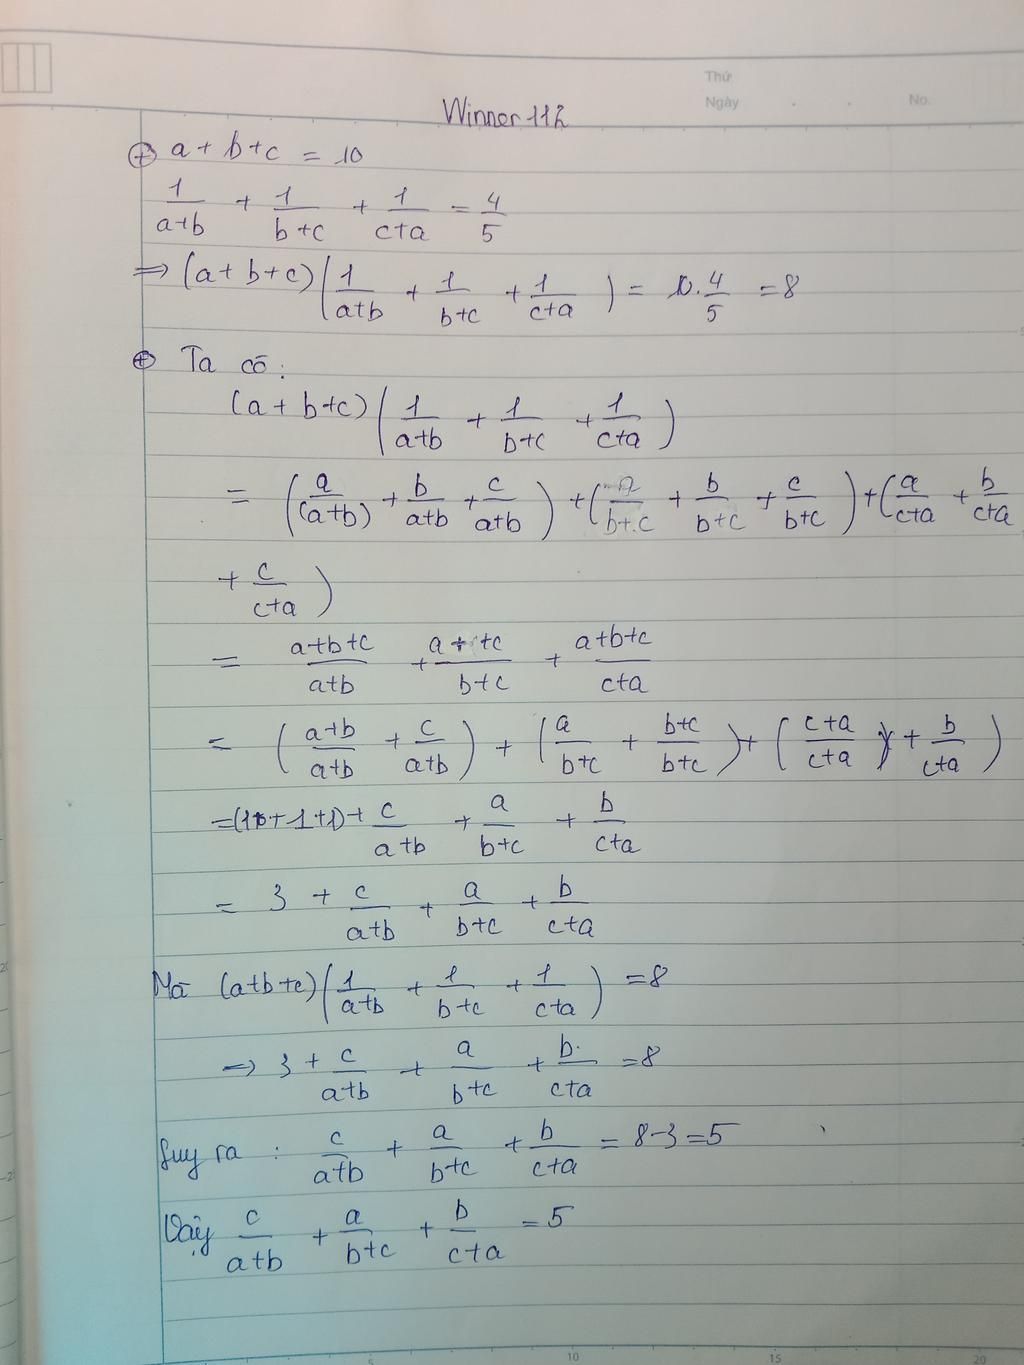 Thứ
Ngày . . No.
Winner 112
⊕ a + b + c = 10
1/(a+b) + 1/(b+c) + 1/(c+a) = 4/5
=> (a + b + c)(1/(a+b) + 1/(b+c) + 1/(c+a)) = 10. 4/5 = 8
⊕ Ta có:
(a + b + c)(1/(a+b) + 1/(b+c) + 1/(c+a))
= (a/(a+b) + b/(a+b) + c/(a+b)) + (a/(b+c) + b/(b+c) + c/(b+c)) + (a/(c+a) + b/(c+a)
+ c/(c+a))
= (a+b+c)/(a+b) + (a+ +c)/(b+c) + (a+b+c)/(c+a)
= ((a+b)/(a+b) + c/(a+b)) + (a/(b+c) + (b+c)/(b+c)) + ((c+a)/(c+a) + b/(c+a))
= (1+1+1) + c/(a+b) + a/(b+c) + b/(c+a)
= 3 + c/(a+b) + a/(b+c) + b/(c+a)
Mà (a+b+c)(1/(a+b) + 1/(b+c) + 1/(c+a)) = 8
=> 3 + c/(a+b) + a/(b+c) + b/(c+a) = 8
Suy ra : c/(a+b) + a/(b+c) + b/(c+a) = 8-3 = 5
Vậy c/(a+b) + a/(b+c) + b/(c+a) = 5
5 10 15 20